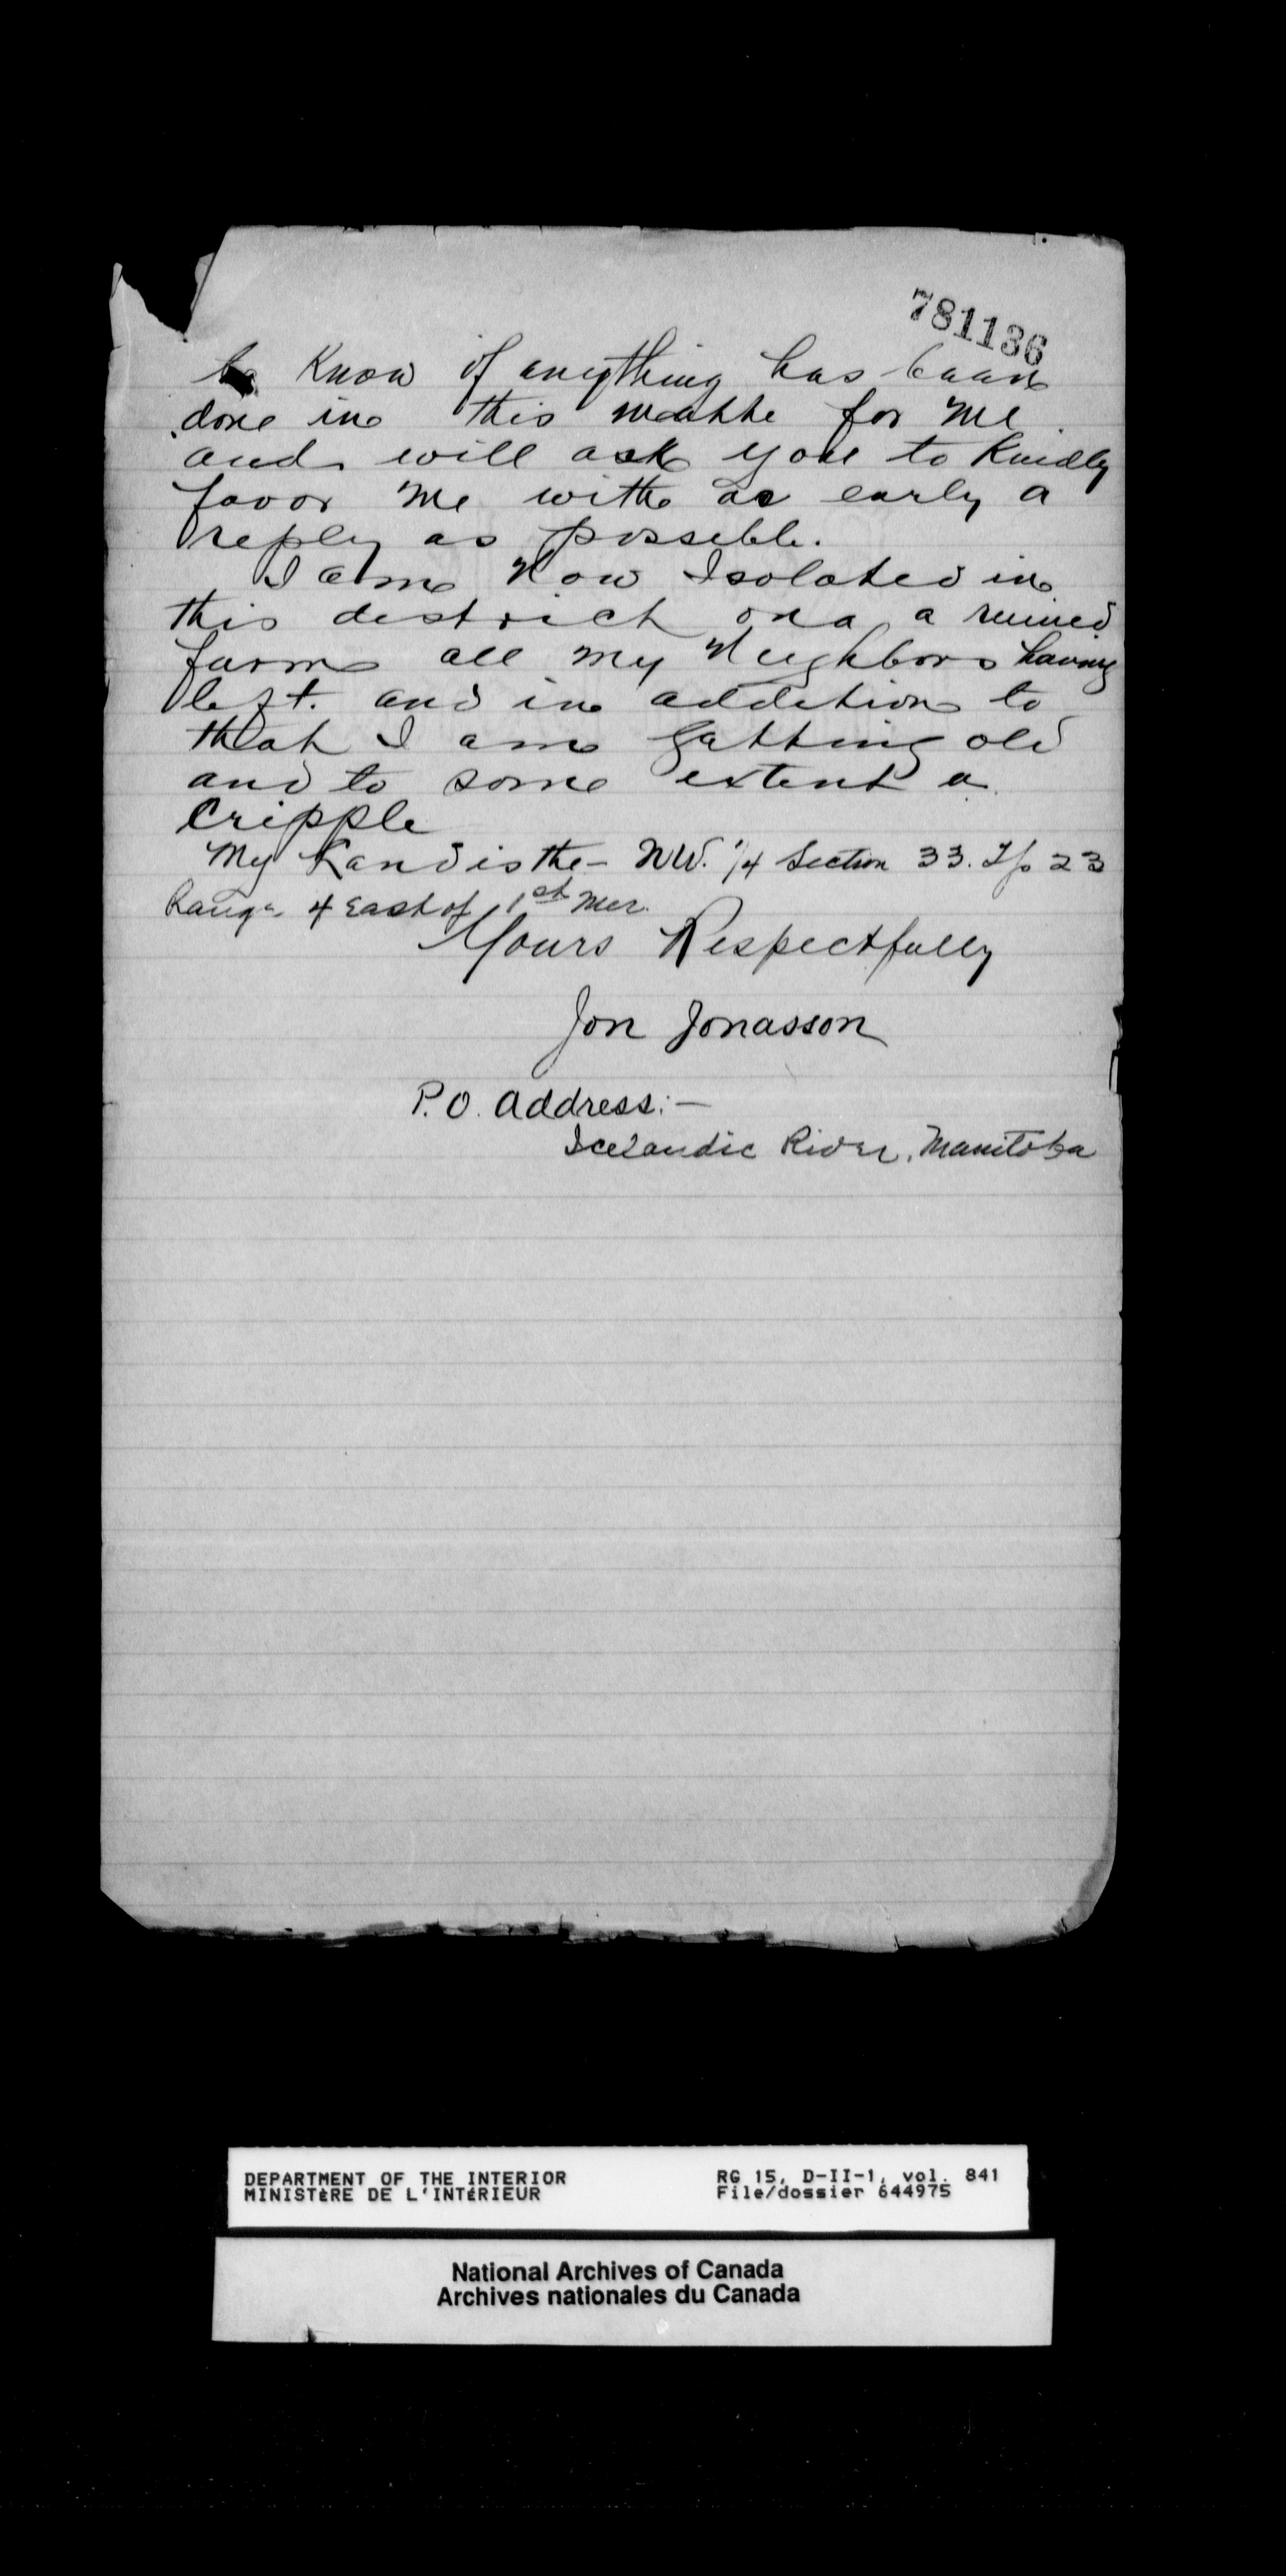 781136
to Know if anything has baan
done in this matthe for me
and will ask you to Kindly
favor me with as early a
reply as possible.
I am Now Isolated in
this district on a a ruined
farm all my Neighbors having
left. and in addition to
that I am gatting old
and to some extent a
Cripple
My Land is the - NW. 1/4 Section 33. Tp 23
Range 4 East of 1st Mer.
Yours Respectfully
Jon Jonasson
P.O. Address:-
Icelandic River, Manitoba
DEPARTMENT OF THE INTERIOR RG 15, D-II-1, vol. 841
MINISTÈRE DE L'INTÉRIEUR File/dossier 644975
National Archives of Canada
Archives nationales du Canada